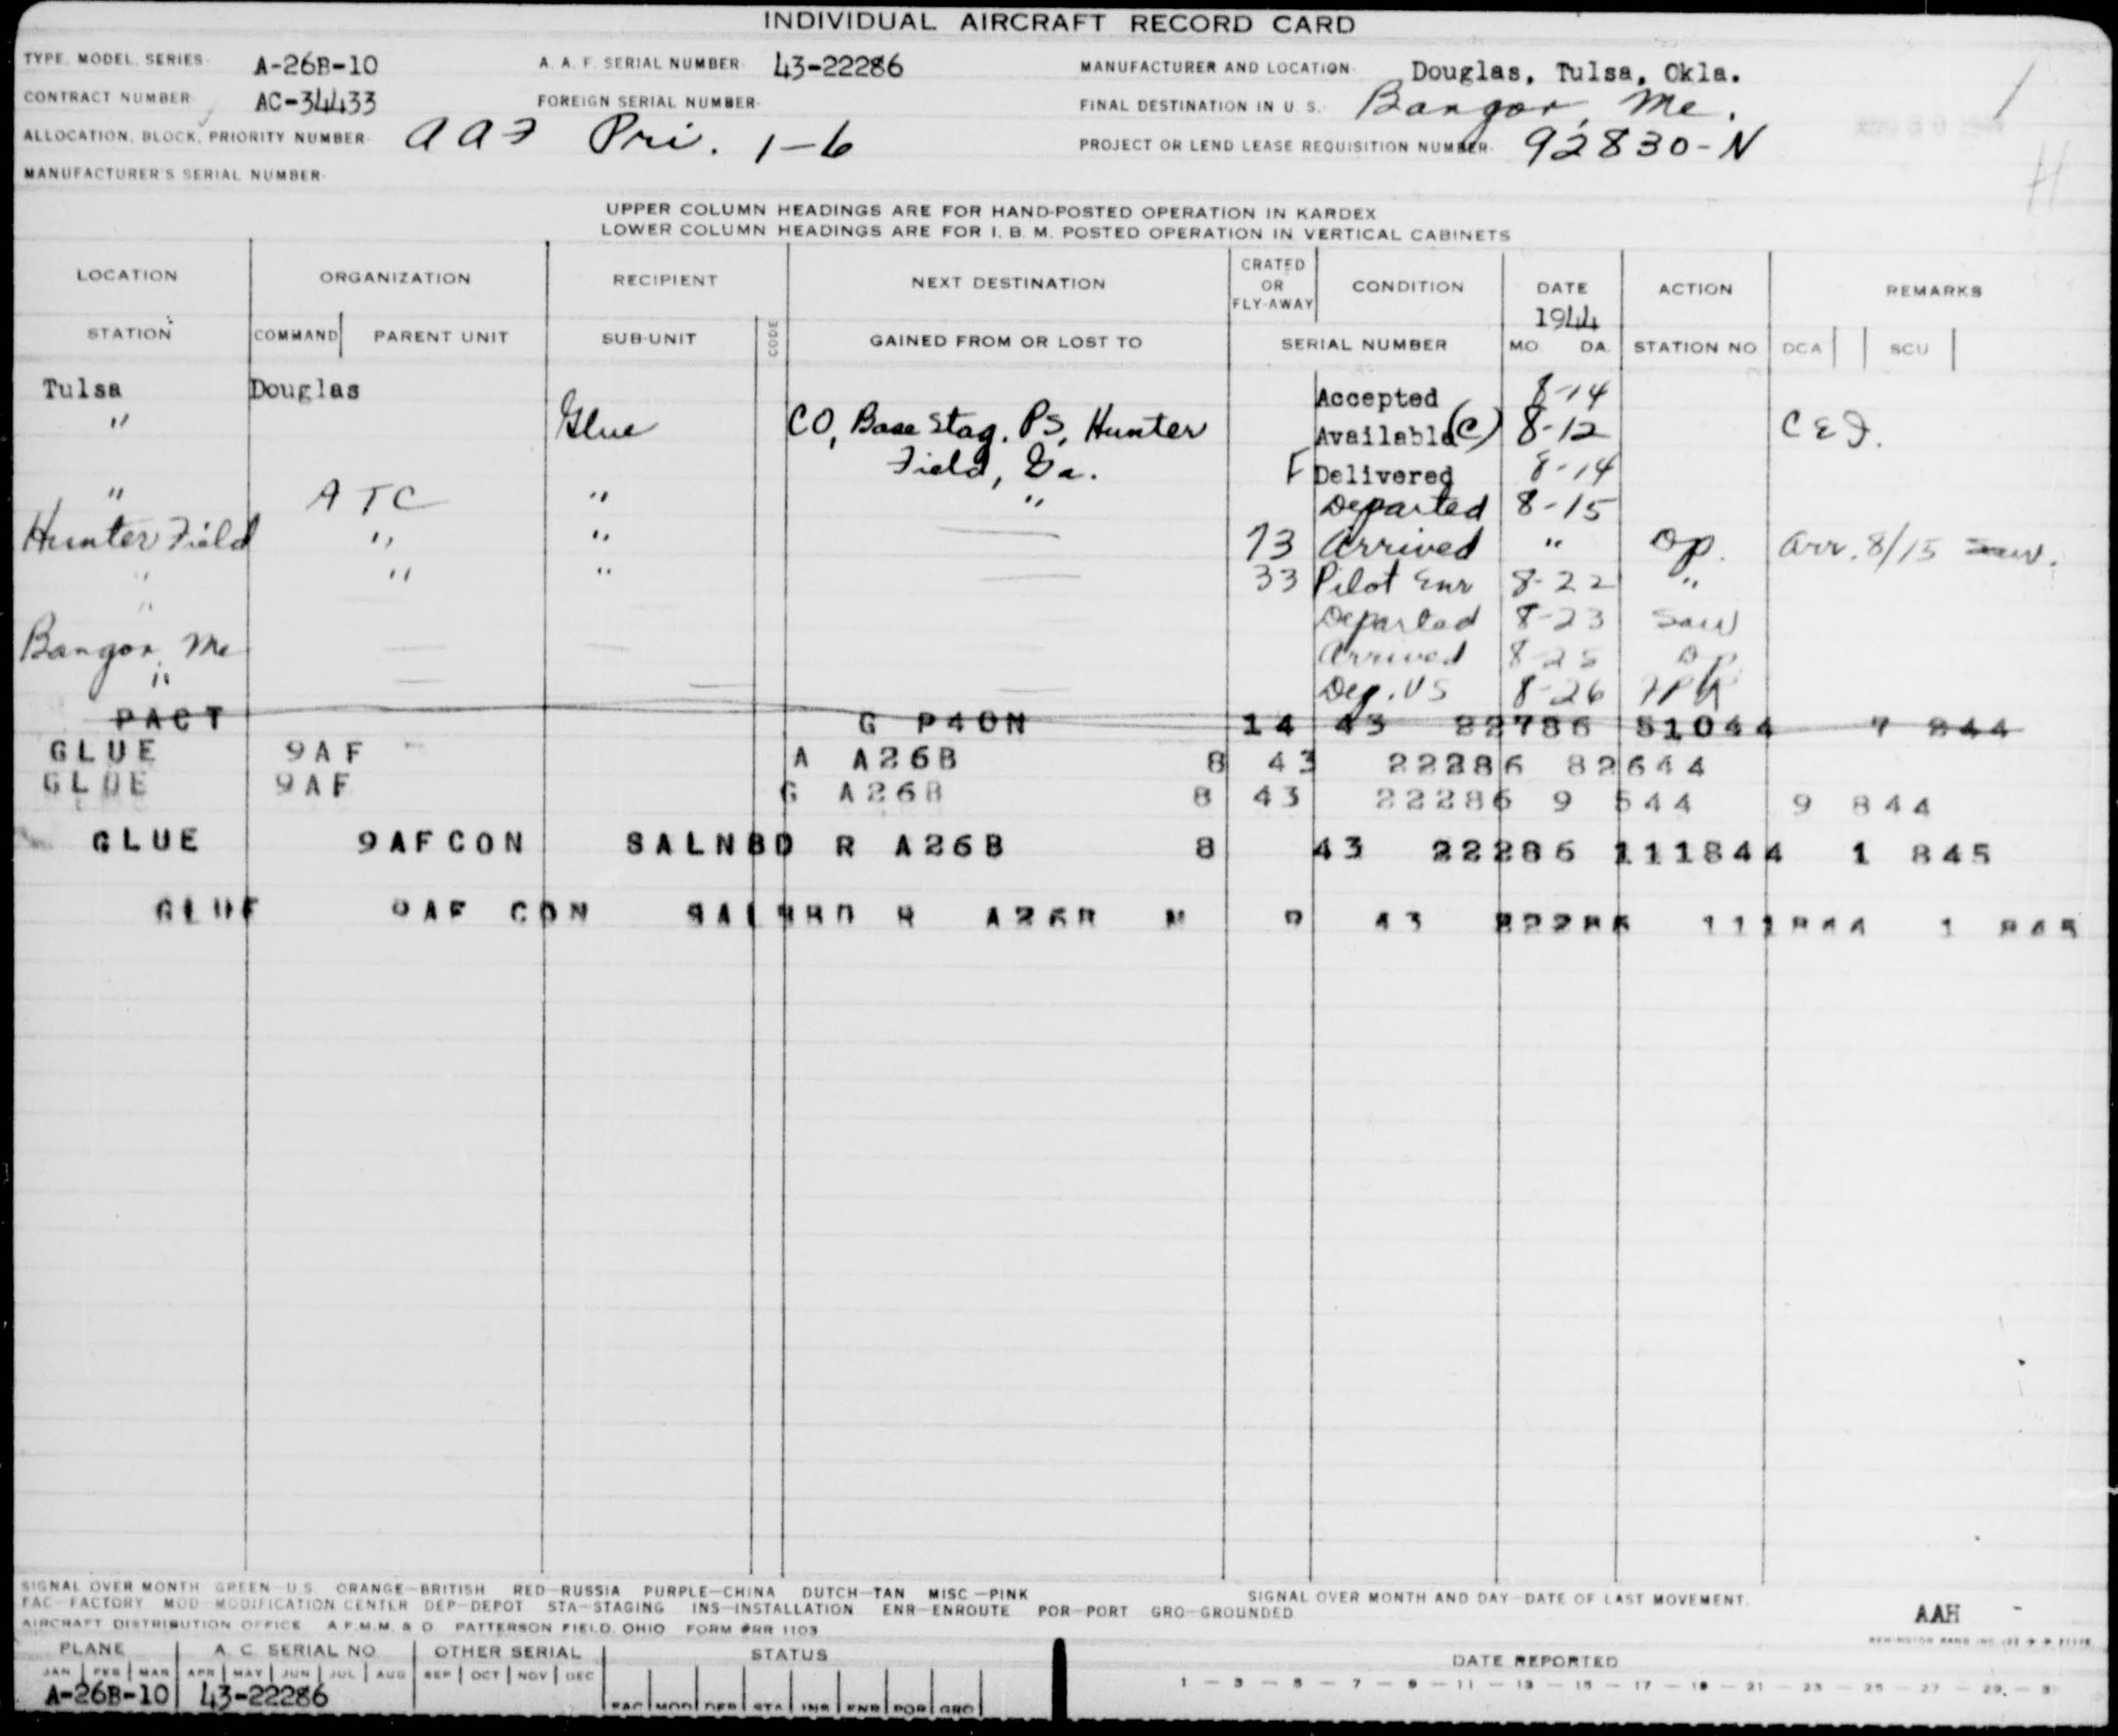 INDIVIDUAL AIRCRAFT RECORD CARD
TYPE, MODEL, SERIES A-26B-10 A. A. F. SERIAL NUMBER 43-22286 MANUFACTURER AND LOCATION Douglas, Tulsa, Okla.
CONTRACT NUMBER AC-34433 FOREIGN SERIAL NUMBER FINAL DESTINATION IN U. S. Bangor, Me.
ALLOCATION, BLOCK, PRIORITY NUMBER AAF Pri. 1-6 PROJECT OR LEND LEASE REQUISITION NUMBER 92830-N
MANUFACTURER'S SERIAL NUMBER
UPPER COLUMN HEADINGS ARE FOR HAND-POSTED OPERATION IN KARDEX
LOWER COLUMN HEADINGS ARE FOR I. B. M. POSTED OPERATION IN VERTICAL CABINETS
LOCATION ORGANIZATION RECIPIENT NEXT DESTINATION CRATED OR FLY-AWAY CONDITION DATE 1944 ACTION REMARKS
STATION COMMAND PARENT UNIT SUB-UNIT CODE GAINED FROM OR LOST TO SERIAL NUMBER MO. DA. STATION NO DCA SCU
Tulsa Douglas Accepted 8-14
" Glue CO, Base Stag. PS, Hunter Available (C) 8-12 C E F.
Field, Ga. F Delivered 8-14
" ATC " " Departed 8-15
Hunter Field " " 73 Arrived " Op. Arr. 8/15 Saw.
" " " 33 Pilot Enr 8-22 "
" Departed 8-23 Saw
Bangor, Me Arrived 8-25 Op
" Dep. US 8-26
PACT G P40N 14 43 22786 51044 7 844
GLUE 9AF A A26B 8 43 22286 82644
GLUE 9AF G A26B 8 43 22286 9 544 9 844
GLUE 9AFCON SALNBD R A26B 8 43 22286 111844 1 845
GLUE 9AF CON SALNBD R A26B 8 43 22286 111844 1 845
SIGNAL OVER MONTH GREEN-U.S. ORANGE-BRITISH RED-RUSSIA PURPLE-CHINA DUTCH-TAN MISC-PINK SIGNAL OVER MONTH AND DAY-DATE OF LAST MOVEMENT.
FAC-FACTORY MOD-MODIFICATION CENTER DEP-DEPOT STA-STAGING INS-INSTALLATION ENR-ENROUTE POR-PORT GRO-GROUNDED
AAH
AIRCRAFT DISTRIBUTION OFFICE A.F.M.M. & D. PATTERSON FIELD, OHIO FORM #RR 1103
PLANE A. C. SERIAL NO. OTHER SERIAL STATUS DATE REPORTED
JAN FEB MAR APR MAY JUN JUL AUG SEP OCT NOV DEC
1 - 3 - 5 - 7 - 9 - 11 - 13 - 15 - 17 - 19 - 21 - 23 - 25 - 27 - 29 - 3
A-26B-10 43-22286
FAC MOD DEP STA INS ENR POR GRO